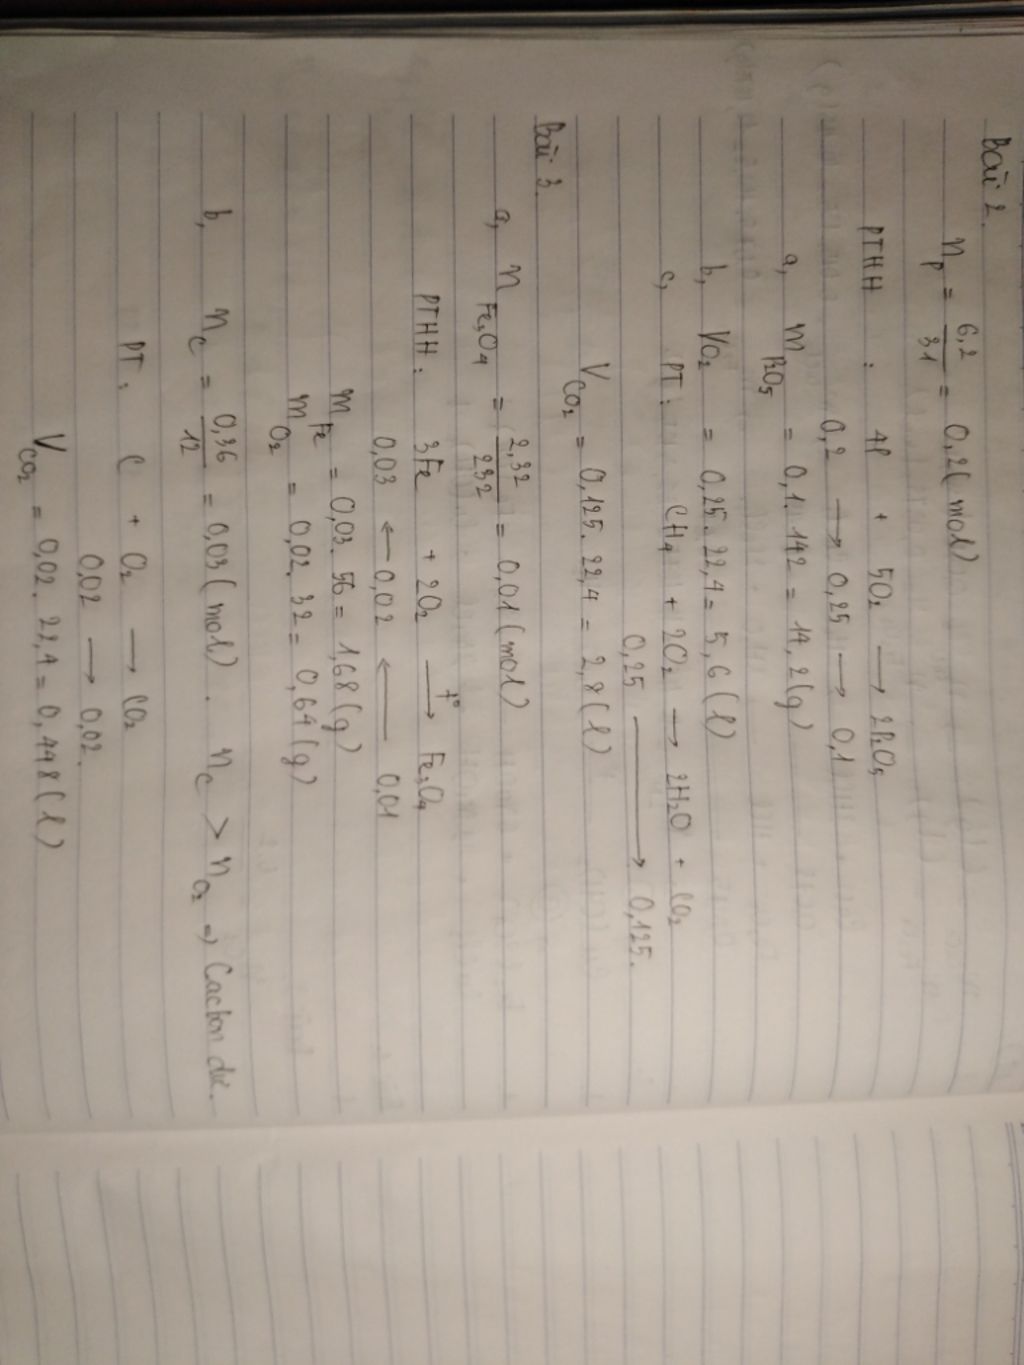 Bài 2.
n_P = 6,2/31 = 0,2 (mol)
PTHH : 4P + 5O₂ → 2P₂O₅
0,2 → 0,25 → 0,1
a, m P₂O₅ = 0,1. 142 = 14,2 (g)
b, VO₂ = 0,25. 22,4 = 5,6 (l)
c, PT: CH₄ + 2O₂ → 2H₂O + CO₂
0,25 → 0,125.
V CO₂ = 0,125. 22,4 = 2,8 (l)
Bài 3.
a, n Fe₃O₄ = 2,32/232 = 0,01 (mol)
PTHH: 3Fe + 2O₂ →t° Fe₃O₄
0,03 ← 0,02 ← 0,01
m Fe = 0,03. 56 = 1,68 (g)
m O₂ = 0,02. 32 = 0,64 (g)
b, n_C = 0,36/12 = 0,03 (mol). n_C > n O₂ => Cacbon dư.
PT: C + O₂ → CO₂
0,02 → 0,02.
V CO₂ = 0,02. 22,4 = 0,448 (l)